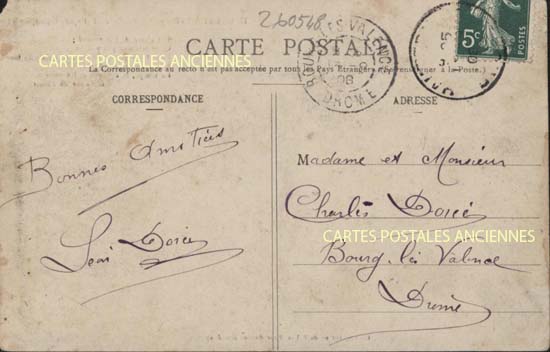 260548
CARTE POSTALE
CARTES POSTALES ANCIENNES
La Correspondance au recto n'est pas acceptée par tous les Pays Étrangers (Se renseigner à la Poste.)
BOURG-LES-VALENCE
08
DROME
5c
POSTES
CORRESPONDANCE
Bonnes Amitiés
ADRESSE
Madame et Monsieur
Charles Dorée
CARTES POSTALES ANCIENNES
Bourg lès Valence
Drome